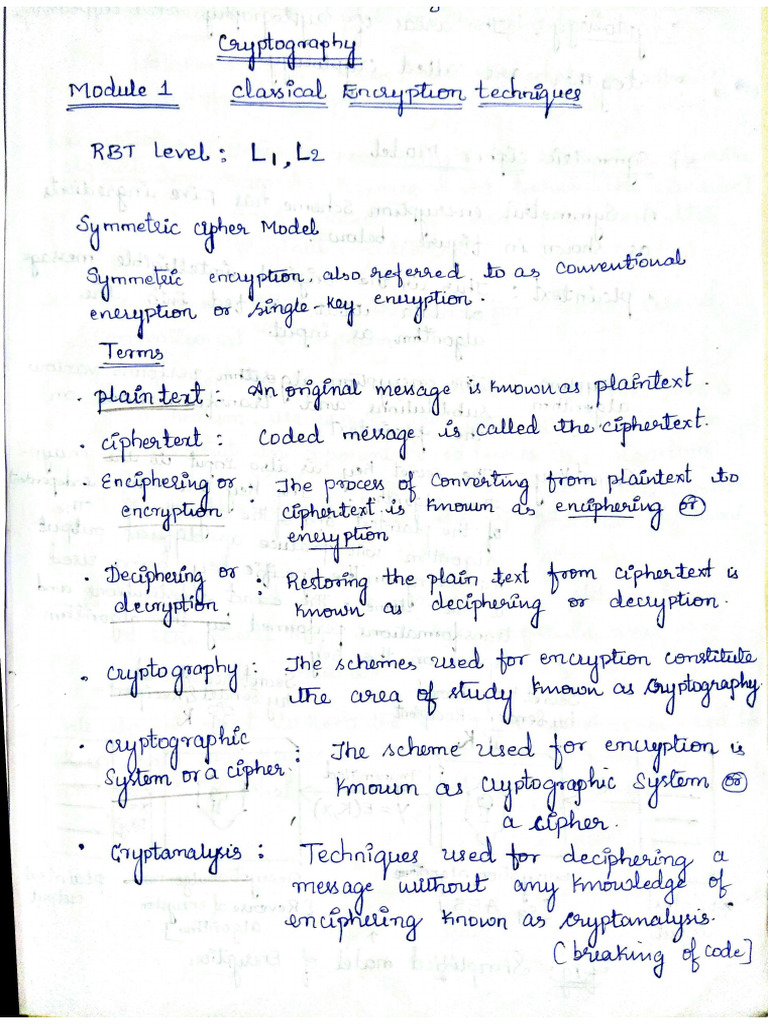 Cryptography
Module 1 Classical Encryption techniques
RBT Level : L1, L2
Symmetric cipher Model
Symmetric encryption, also referred to as conventional
encryption or single-key encryption.
Terms
• plaintext : An original message is known as plaintext.
• ciphertext : Coded message is called the ciphertext.
• Enciphering or : The process of converting from plaintext to
encryption ciphertext is known as enciphering or
encryption
• Deciphering or : Restoring the plain text from ciphertext is
decryption known as deciphering or decryption.
• cryptography : The schemes used for encryption constitute
the area of study known as cryptography
• cryptographic
System or a cipher : The scheme used for encryption is
known as cryptographic System or
a cipher.
• Cryptanalysis : Techniques used for deciphering a
message without any knowledge of
enciphering known as cryptanalysis.
[breaking of code]